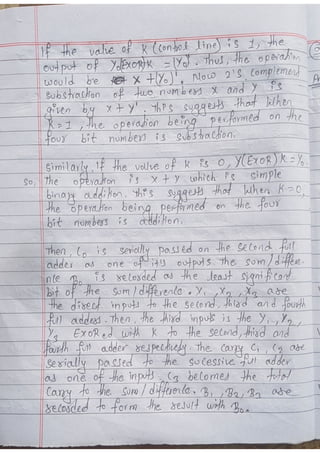 If the value of K (control line) is 1, the
output of Y₀(ExOR)K = (Y₀)'. Thus, the operation
would be X + (Y₀)'. Now 2's complement
substraction of two numbers X and Y is
given by X + Y'. This suggests that when
K = 1, the operation being performed on the
four bit numbers is substraction.
Similarly, if the value of K is 0, Y(ExOR)K = Y₀
So, the operation is X + Y which is simple
binary addition. This suggests that when K = 0,
the operation being performed on the four
bit numbers is addition.
Then, C₀ is serially passed on the second full
adder as one of its outputs. The sum / differe-
nce B₀ is recorded as the least significant
bit of the sum / difference. X₁, X₂, X₃ are
the direct inputs to the second, third and fourth
full adders. Then, the third inputs is the Y₁, Y₂,
Y₃ ExORed with K to the second, third and
fourth full adder respectively. The carry C₁, C₂ are
serially passed to the sucessive full adder
as one of the inputs. C₃ becomes the total
carry to the sum / difference. B₁, B₂, B₃ are
recorded to form the result with B₀.